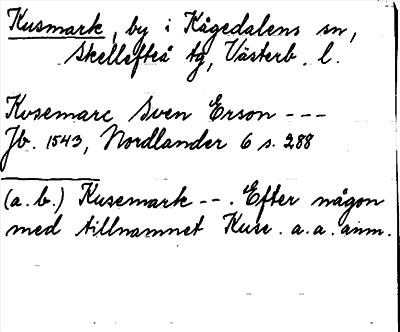 Kusmark, by i Kågedalens sn,
Skellefteå tg, Västerb. l.
Kusemarc Sven Erson ---
Jb. 1543, Nordlander 6 s. 288
(a. b.) Kusemark --. Efter någon
med tillnamnet Kuse. a. a. anm.